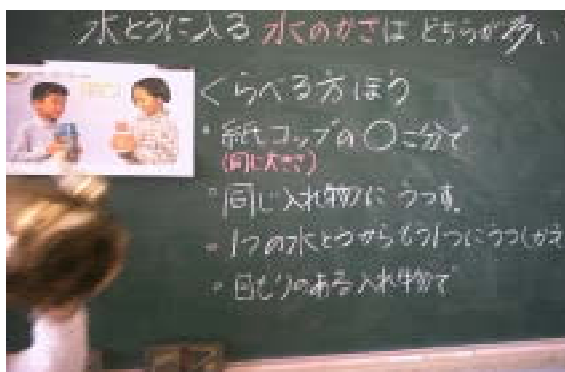 水とうに入る水のかさはどちらが多い
くらべる方ほう
・紙コップの〇こ分で
(同じ大きさ)
・同じ入れ物にうつす。
・1つの水とうからもう1つにうつしかえ
・目もりのある入れ物で